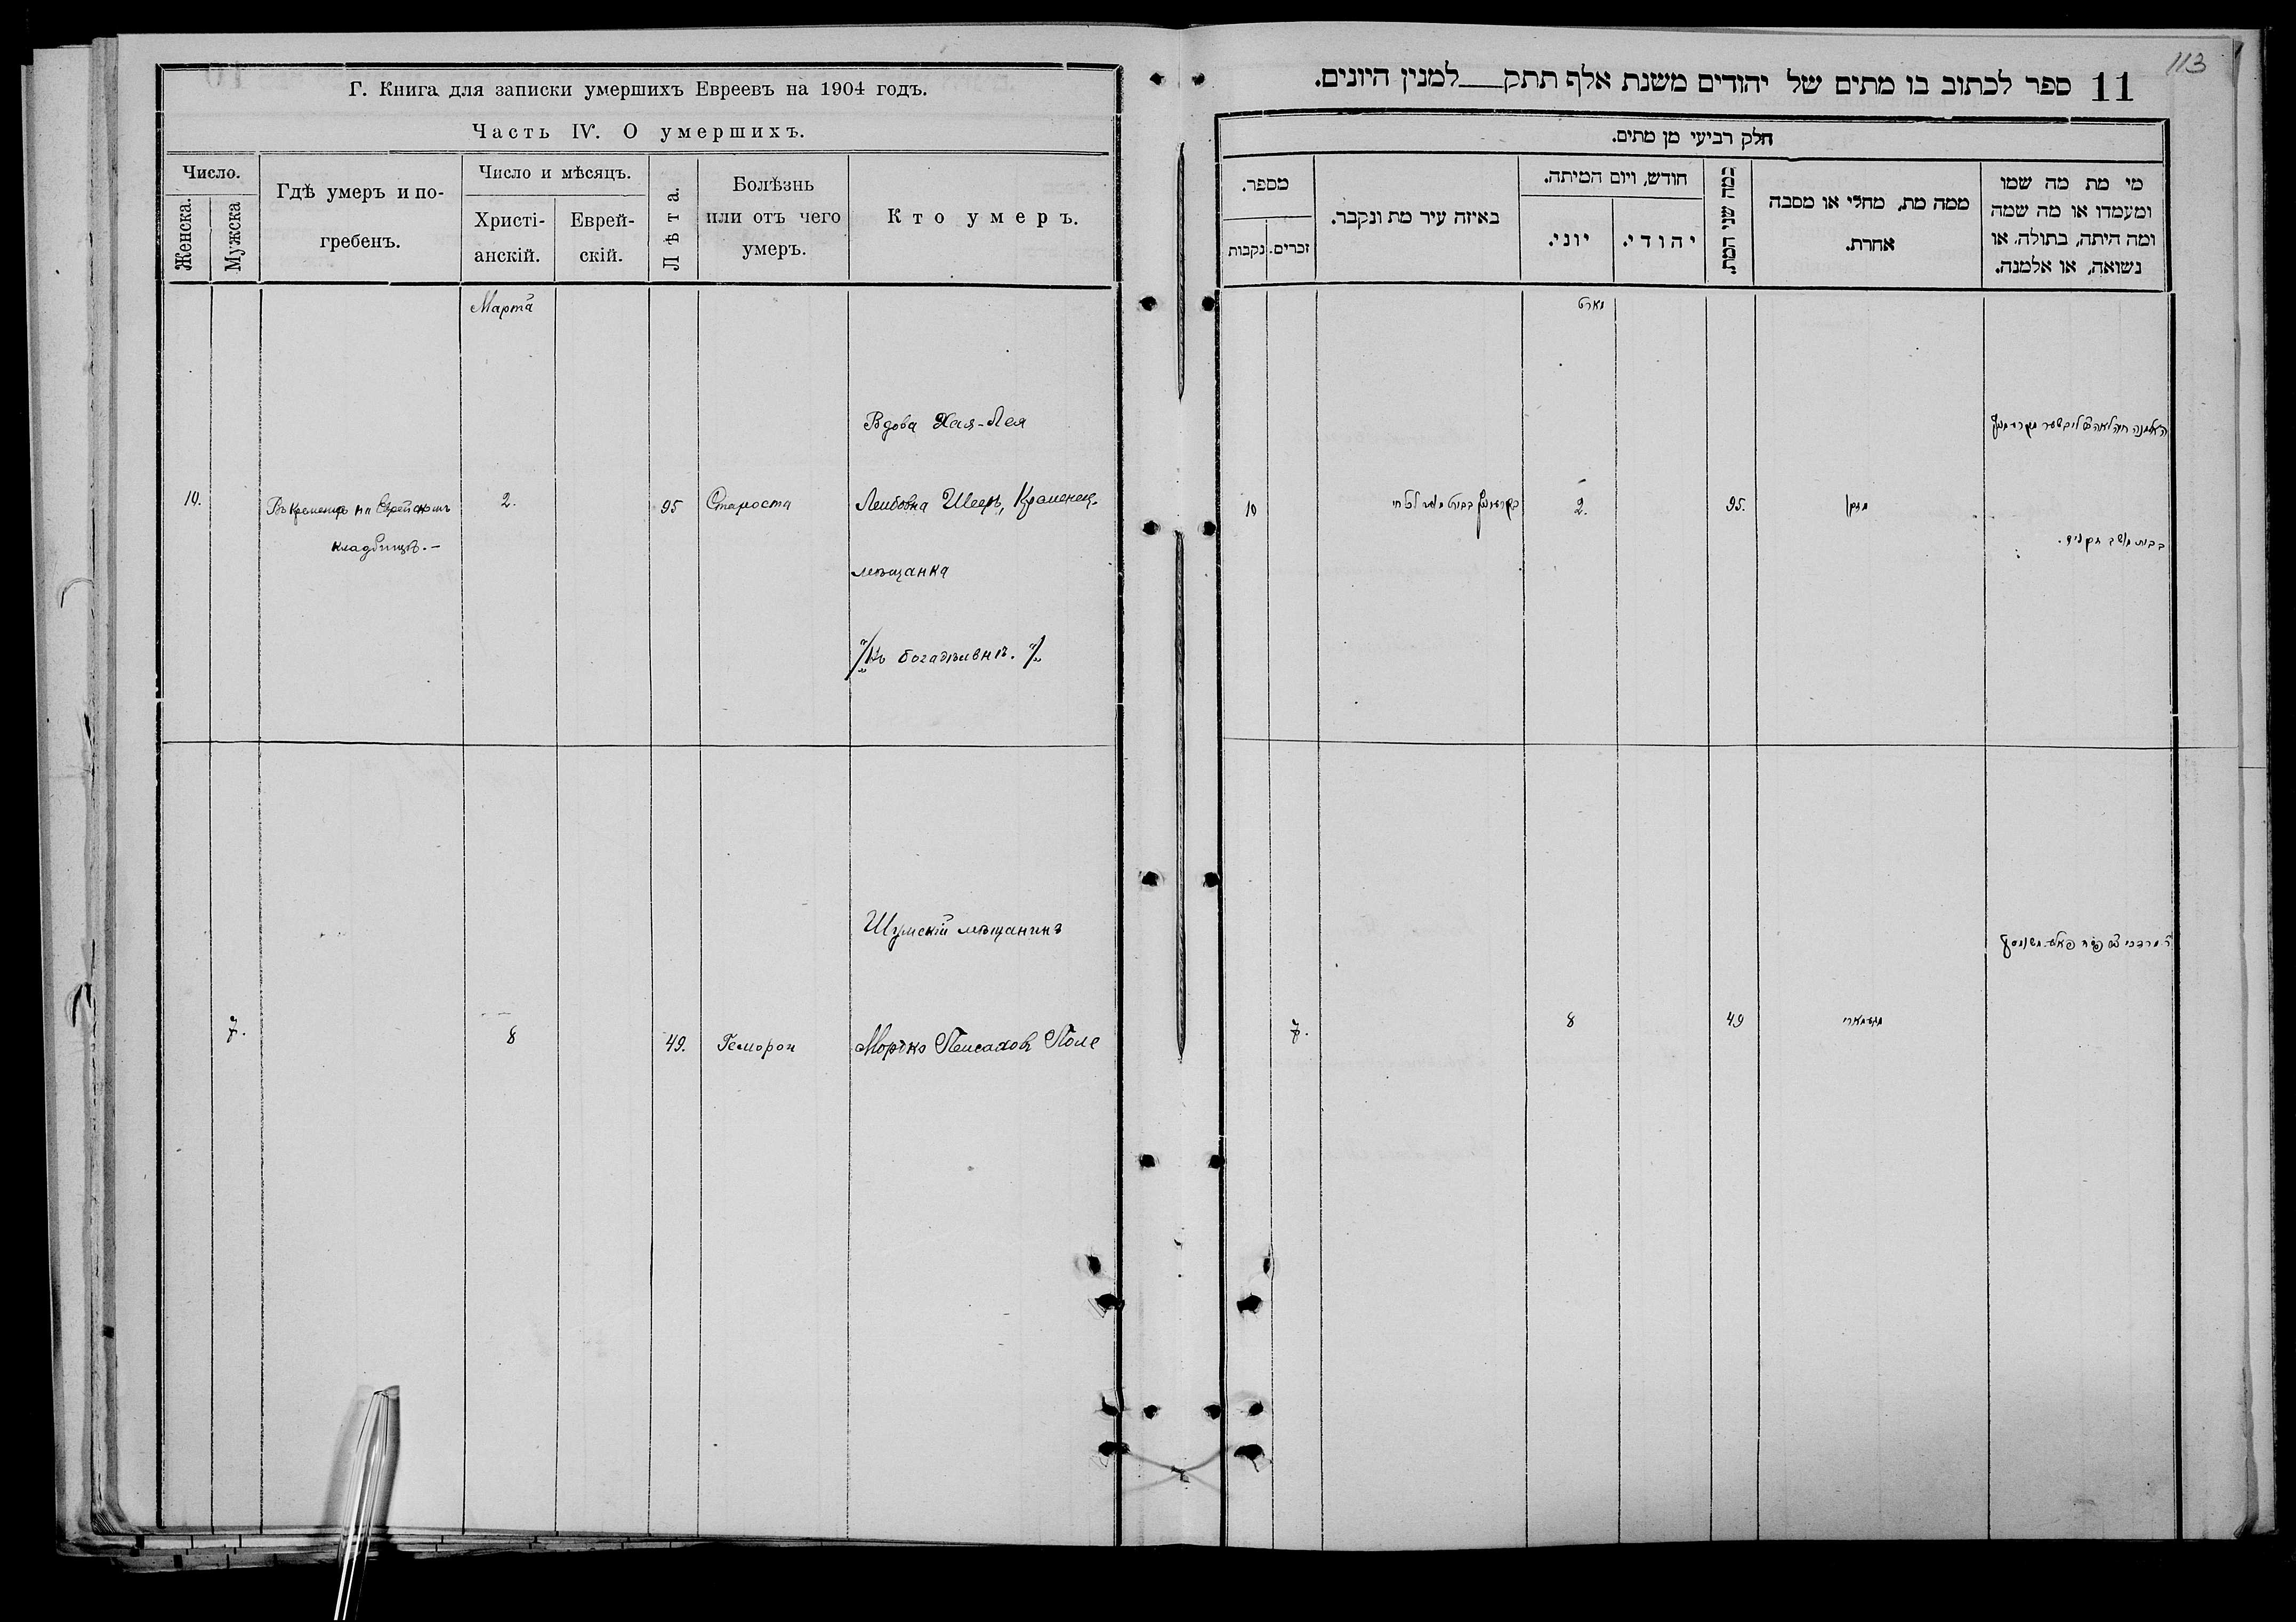 Г. Книга для записки умершихъ Евреевъ на 1904 годъ.
Часть IV. О умершихъ.
Число.
Женска.
Мужска
Гдѣ умеръ и по-
гребенъ.
Число и мѣсяцъ.
Христі-
анскій.
Еврей-
скій.
Лѣта.
Болѣзнь
или отъ чего
умеръ.
Кто умеръ.
Марта
Вдова Хая-Лея
10.
Въ Кременцѣ на Еврейскомъ
кладбищѣ.-
2.
95
Староста
Лейбовна Шееръ, Кременец.
мѣщанка
Въ богадѣльнѣ.
Шумскій мѣщанинъ
7.
8
49.
Геморон
Мортко Пейсахов Поле
113
11 ספר לכתוב בו מתים של יהודים משנת אלף תתק למנין היונים.
חלק רביעי מן מתים.
מספר.
נקבות
זכרים.
באיזה עיר מת ונקבר.
חודש, ויום המיתה.
יוני.
יהודי.
כמה שני המת.
ממה מת, מחלי או מסבה
אחרת.
מי מת מה שמו
ומעמדו או מה שמה
ומה היתה, בתולה, או
נשואה, או אלמנה.
מארט
האלמנה חיה לאה
10
2.
95.
מזקן
7.
8
49